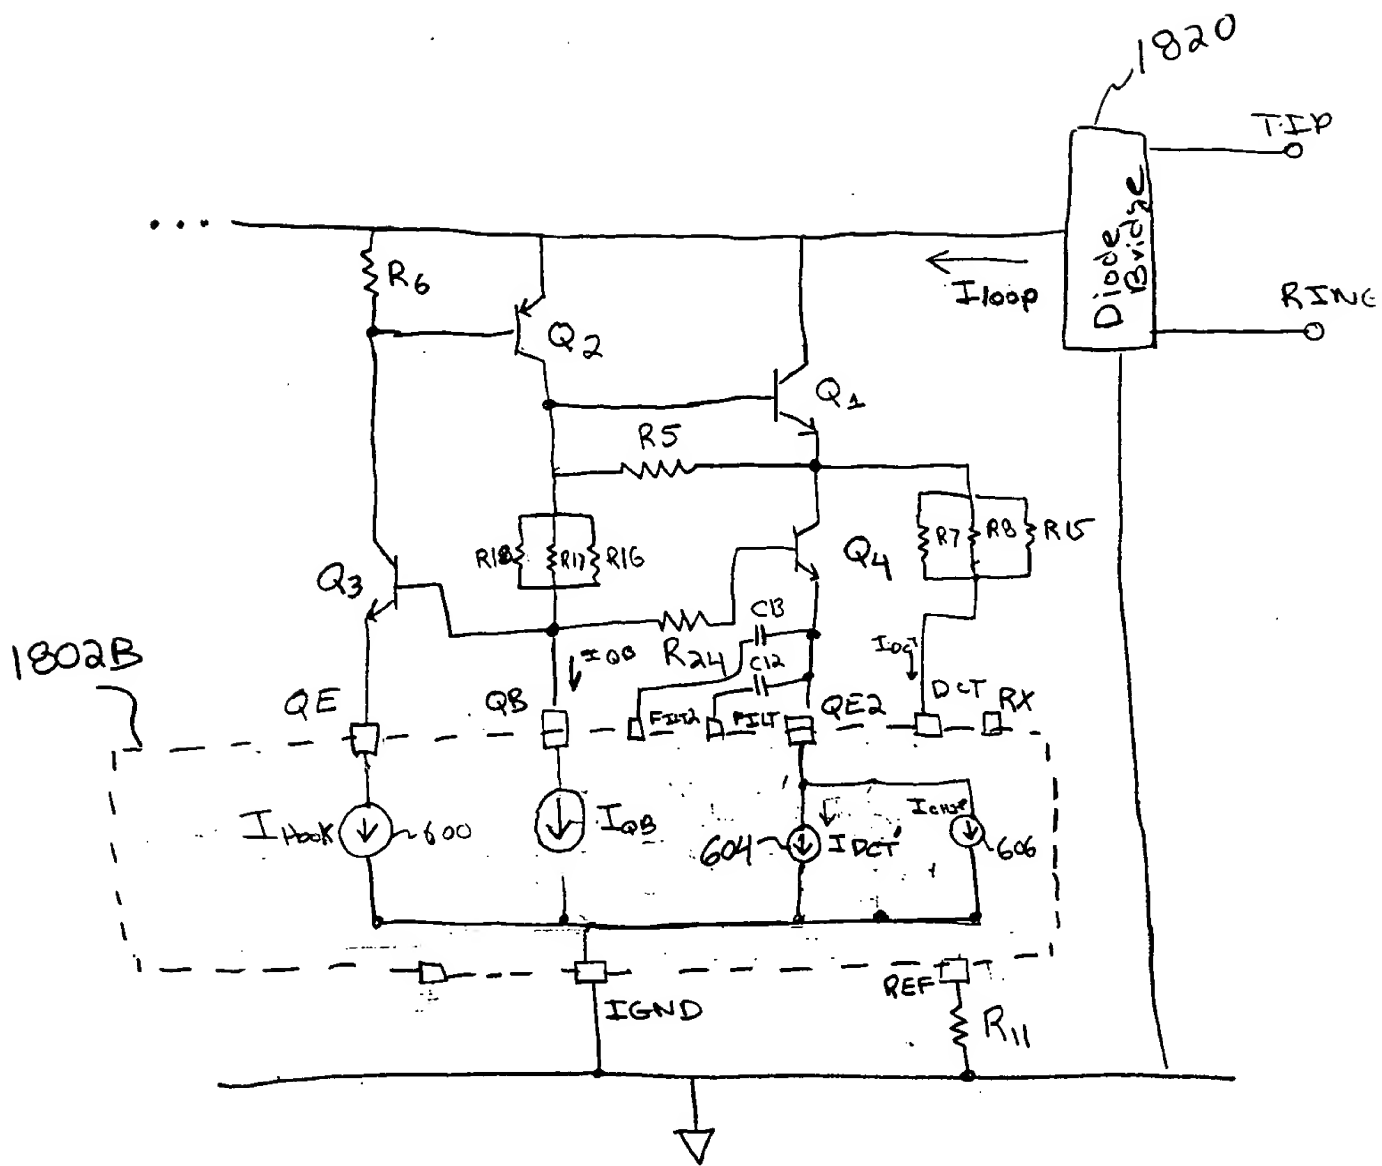 1820
TIP
Diode
Bridge
RING
Iloop
...
R6
Q2
Q1
R5
R18
R17
R16
Q4
R7
R8
R15
Q3
C13
R24
C12
IQB
IDCT
1802B
QE
QB
FILT2
FILT
QE2
DCT
RX
IHook
600
IQB
604
IDCT'
ICHIP
606
IGND
REF
R11